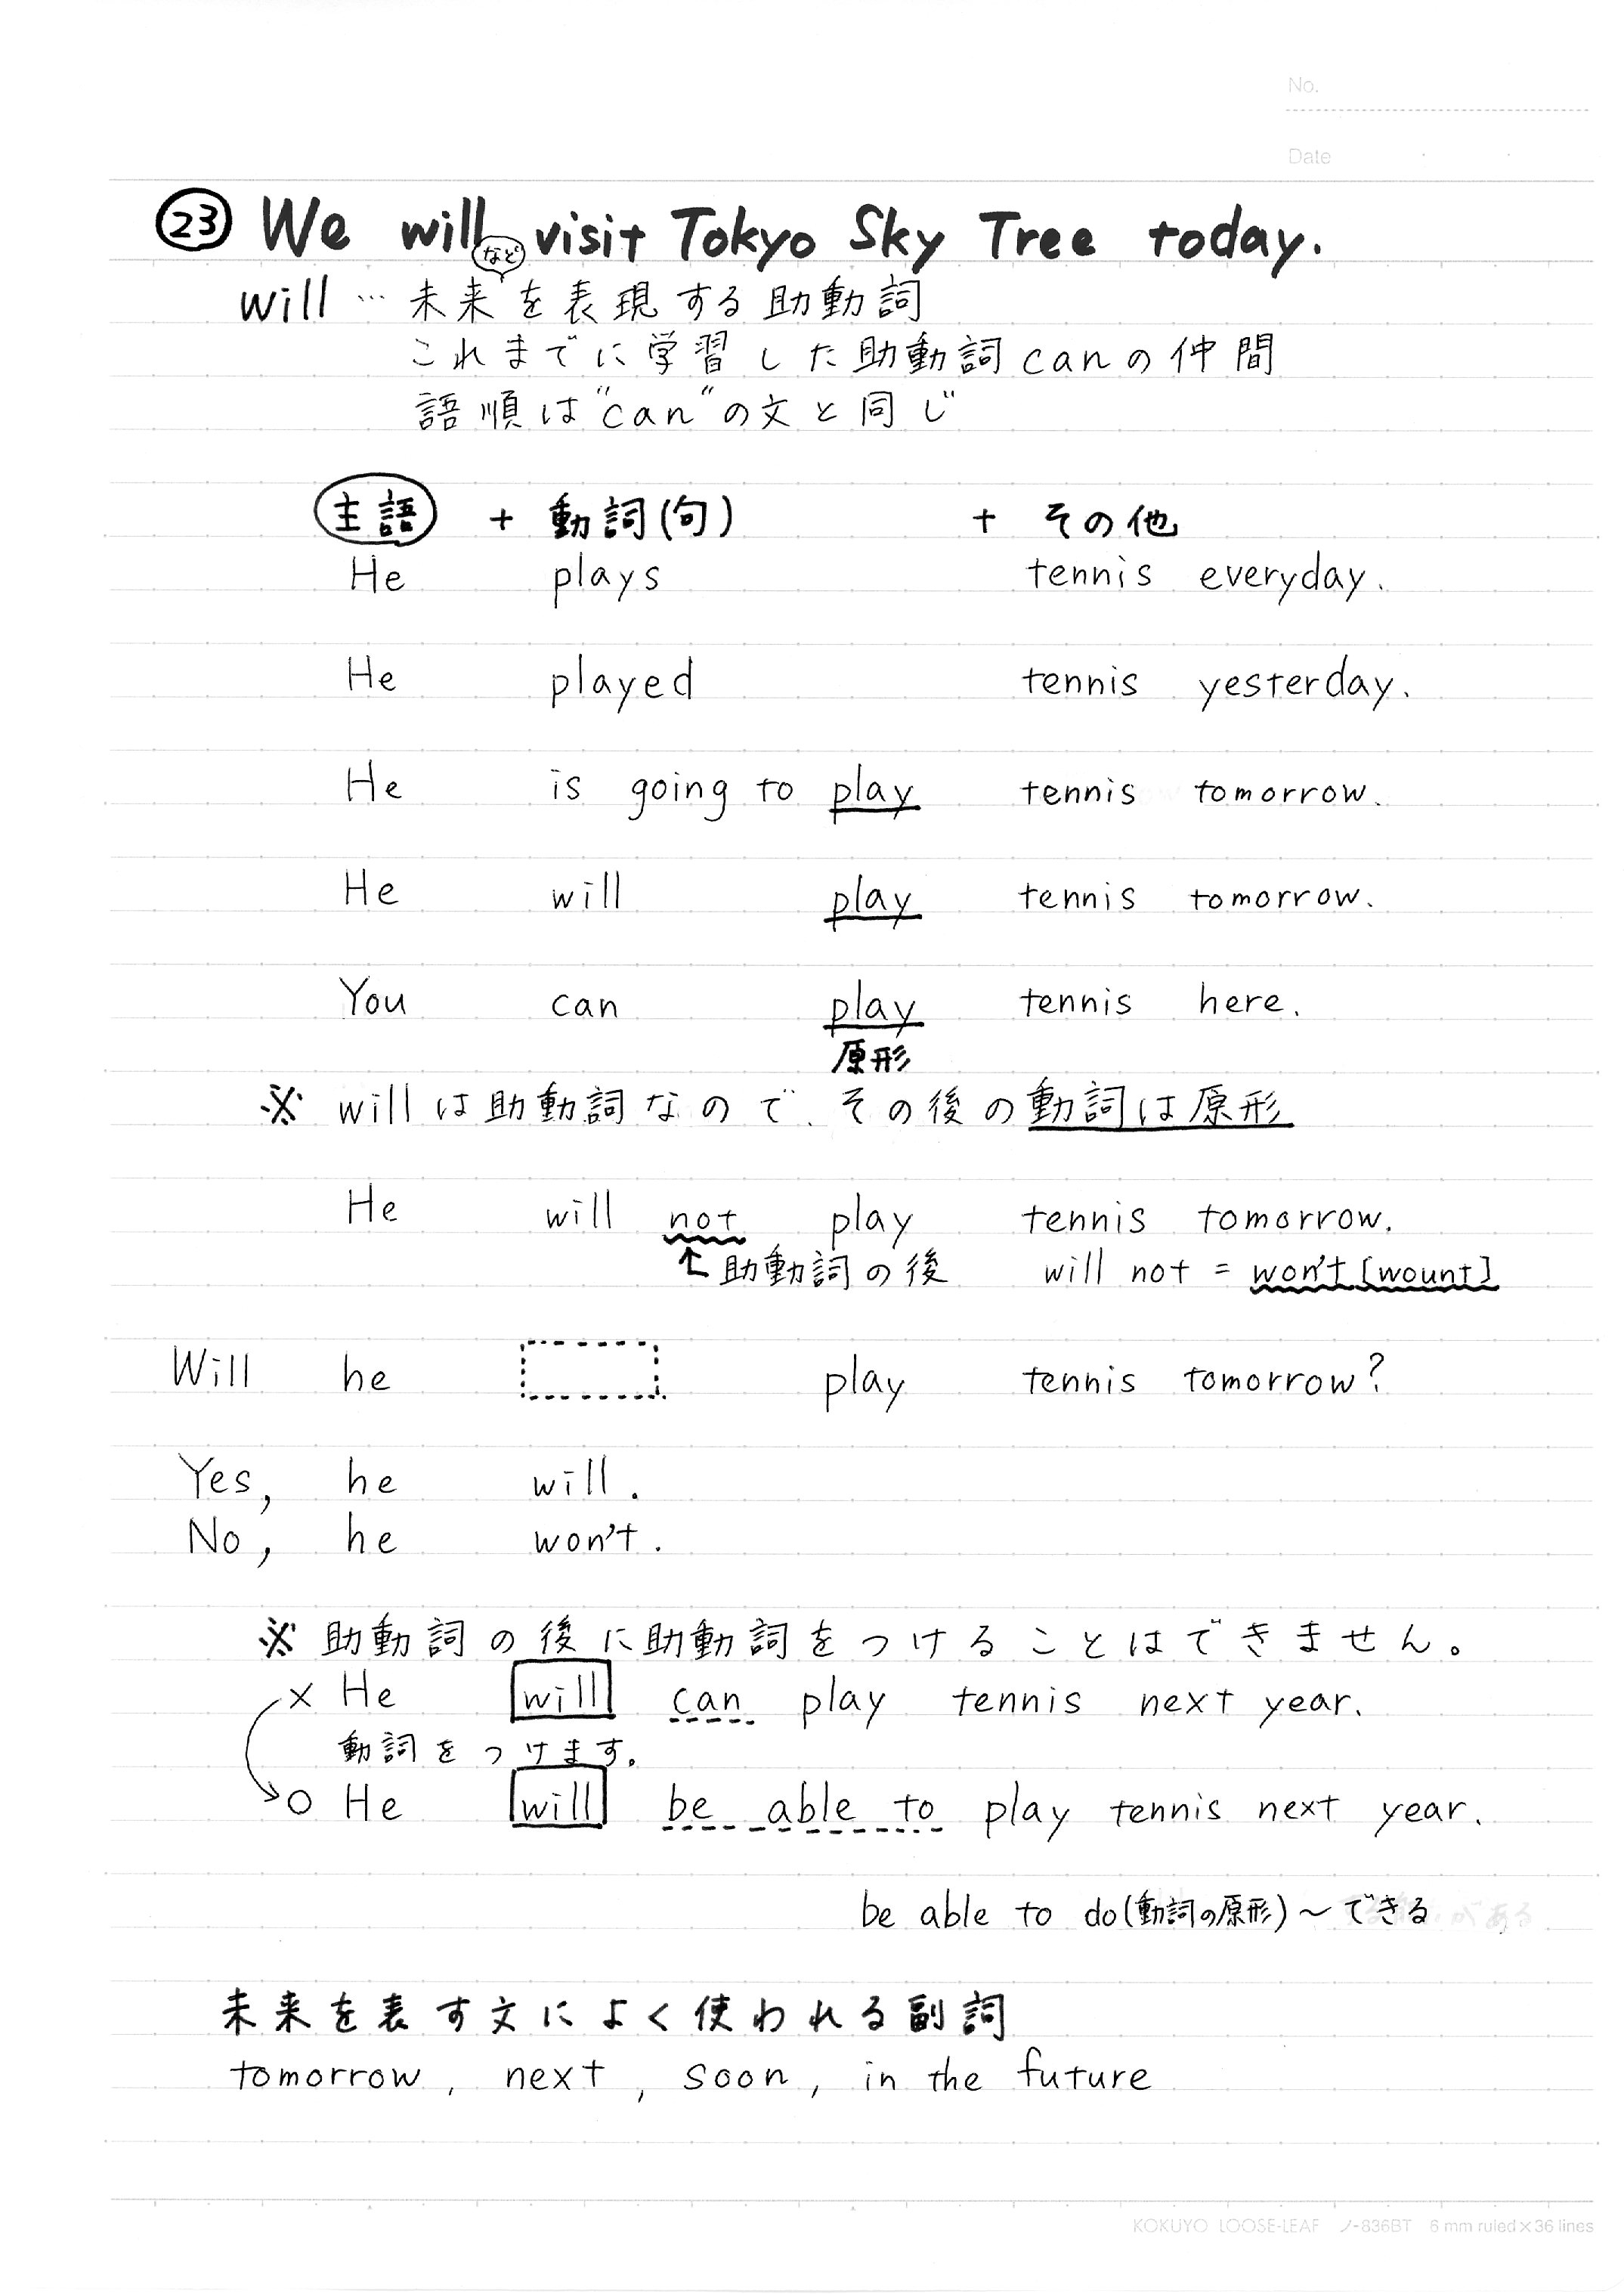 No.
Date
㉓ We will visit Tokyo Sky Tree today.
など
will … 未来を表現する助動詞
これまでに学習した助動詞canの仲間
語順は"can"の文と同じ
主語 + 動詞(句) + その他
He plays tennis everyday.
He played tennis yesterday.
He is going to play tennis tomorrow.
He will play tennis tomorrow.
You can play tennis here.
原形
※ willは助動詞なので、その後の動詞は原形
He will not play tennis tomorrow.
↑助動詞の後 will not = won't [wount]
Will he play tennis tomorrow?
Yes, he will.
No, he won't.
※ 助動詞の後に助動詞をつけることはできません。
× He will can play tennis next year.
動詞をつけます。
○ He will be able to play tennis next year.
be able to do(動詞の原形)〜できる
未来を表す文によく使われる副詞
tomorrow, next, soon, in the future
KOKUYO LOOSE-LEAF ノ-836BT 6 mm ruled×36 lines